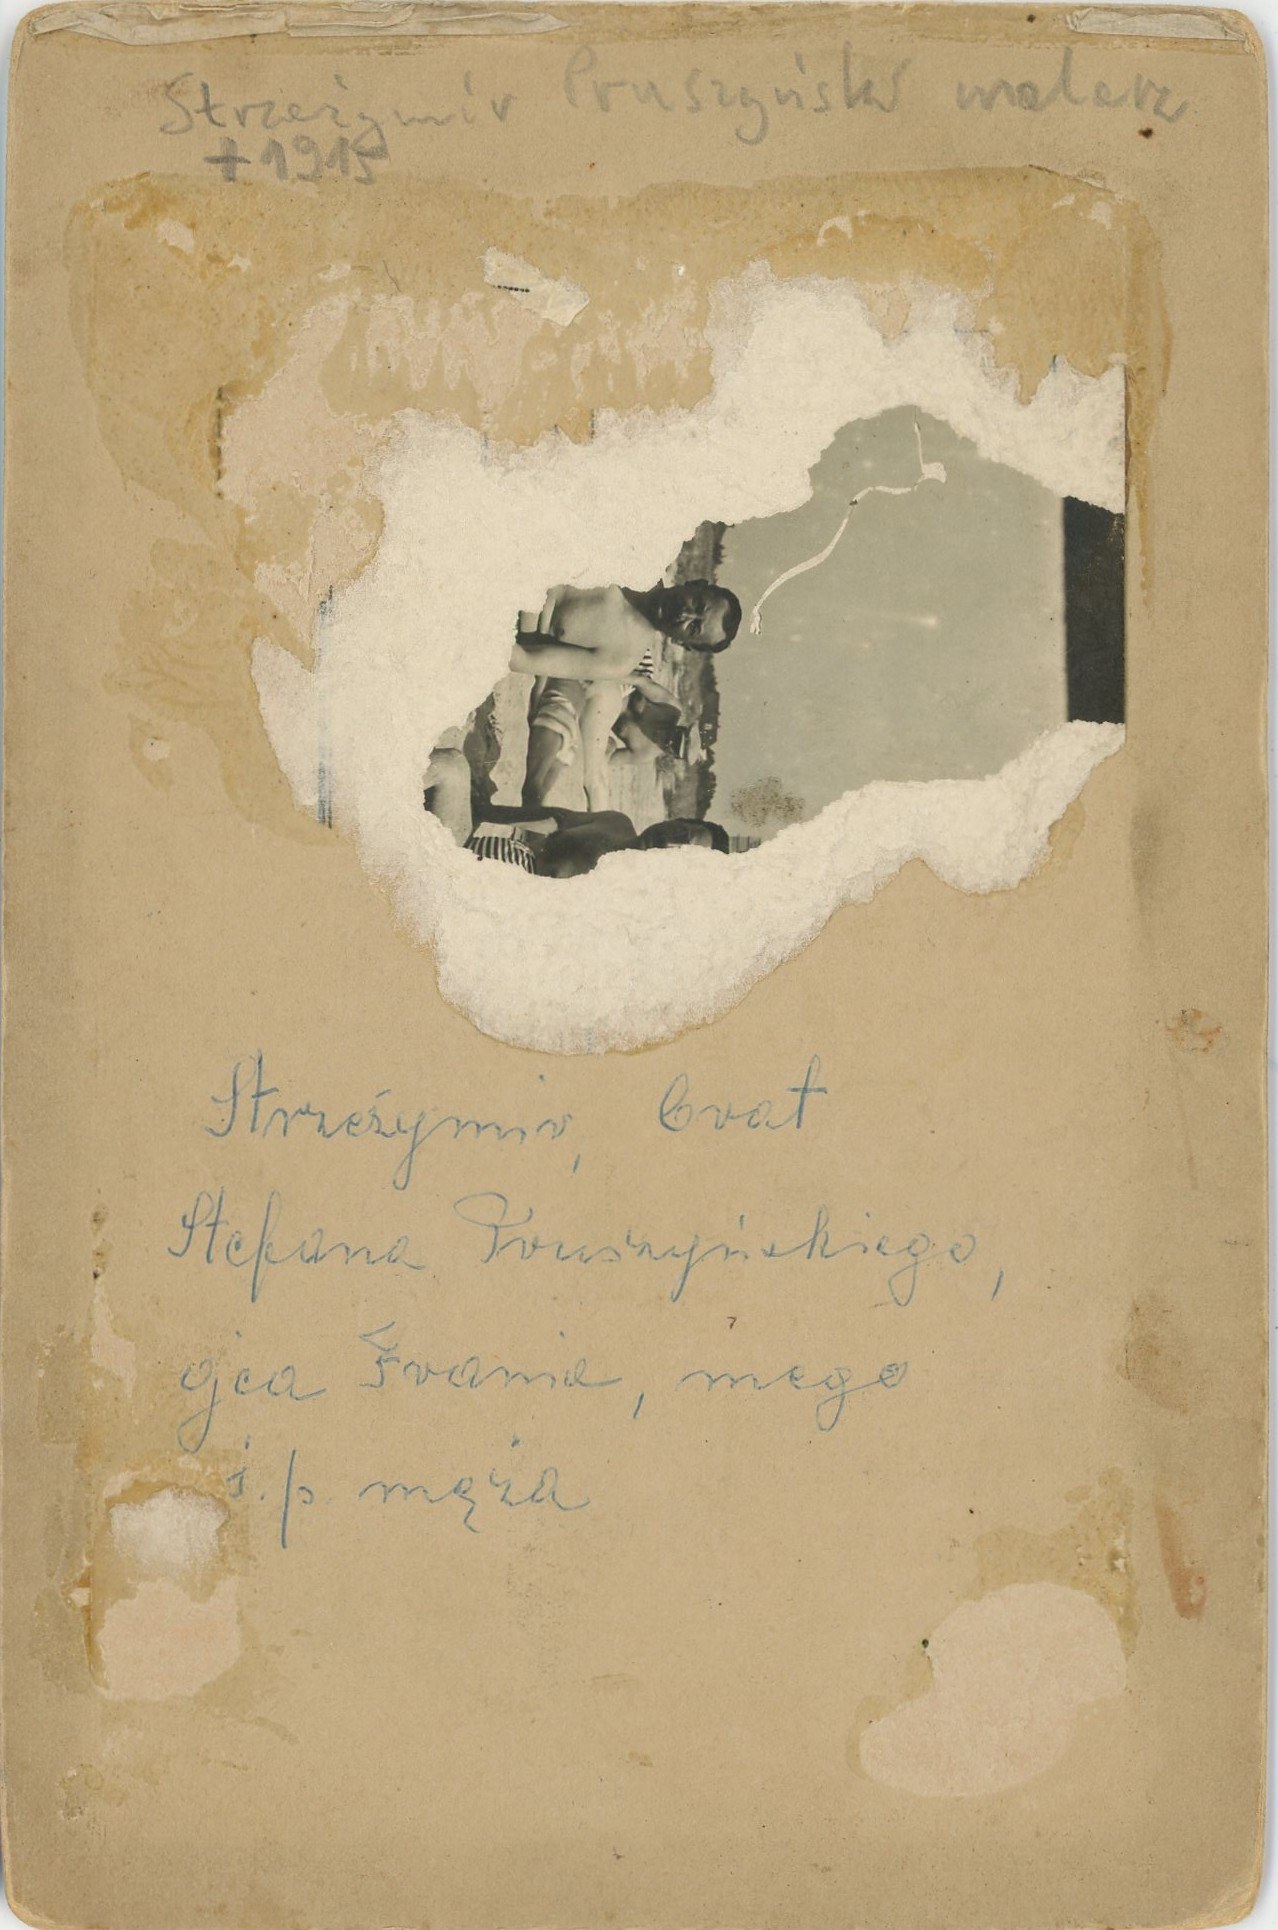 Strzeżymir Pruszyński malarz
+ 1915
Strzeżymir, brat
Stefana Pruszyńskiego,
ojca Frania, mego
ś. p. męża